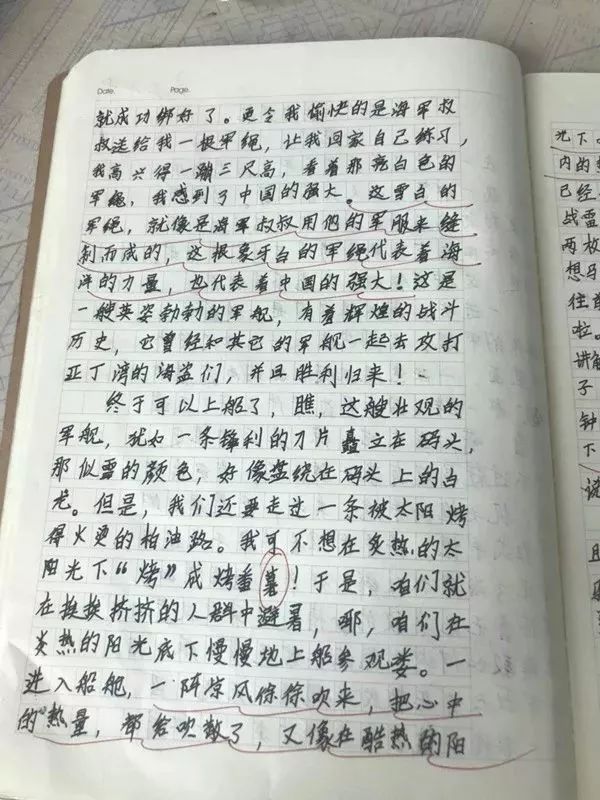 Date.
Page.
就成功绑好了。更令我愉快的是海军叔
叔送给我一根军绳，让我回家自己练习，
我高兴得一蹦三尺高，看着那亮白色的
军绳，我感到了中国的强大。这雪白的
军绳，就像是海军叔叔用他的军服来缝
制而成的，这根象牙白的军绳代表着海
洋的力量，也代表着中国的强大！这是
一艘英姿勃勃的军舰，有着辉煌的战斗
历史，它曾经和其它的军舰一起去攻打
亚丁湾的海盗们，并且胜利归来！
终于可以上船了，瞧，这艘壮观的
军舰，犹如一条锋利的刀片矗立在码头，
那似雪的颜色，好像盘绕在码头上的白
龙。但是，我们还要走过一条被太阳烤
得火烫的柏油路。我可不想在炙热的太
阳光下“烤”成烤番薯！于是，咱们就
在挨挨挤挤的人群中避暑，耶，咱们在
炎热的阳光底下慢慢地上船参观喽。一
进入船舱，一阵凉风倧倧吹来，把心中
的热量，都给吹散了，又像在酷热的阳
光下
内的
已经
战雷
两枚
想马
住首
啦。
讲解
子
钟